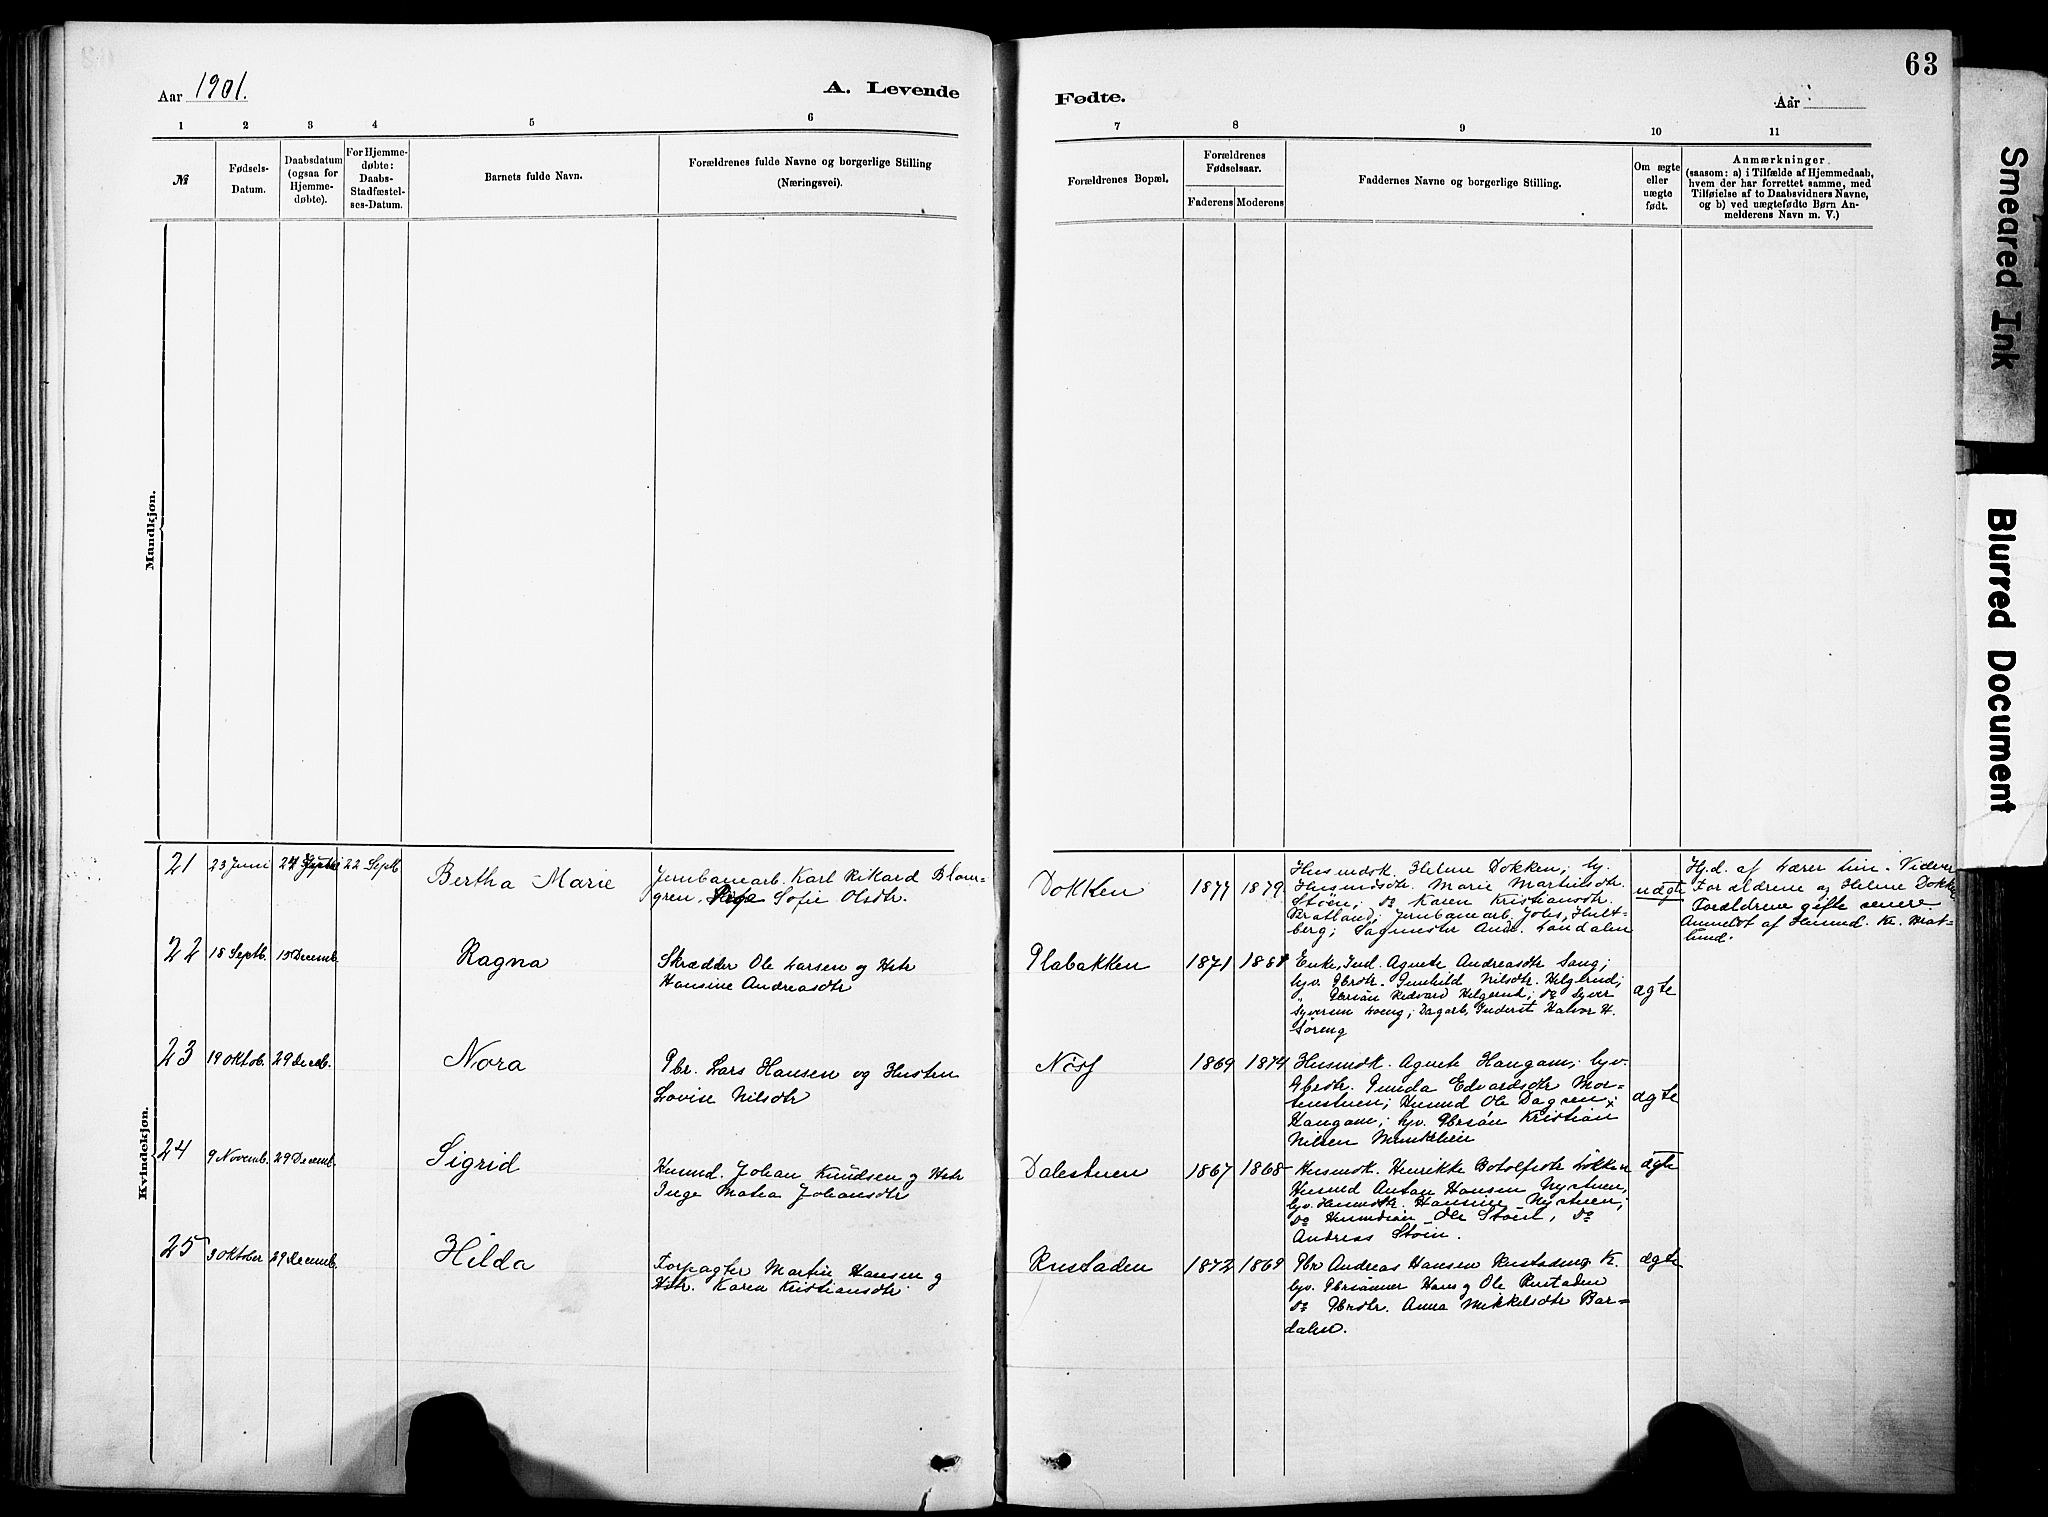 63
Aar 1901.
A. Levende
Fødte.
Aar
1 2 3 4 5 6
7 8 9 10 11
№
Fødsels-
Datum.
Daabsdatum
(ogsaa for
Hjemme-
døbte).
For Hjemme-
døbte:
Daabs-
Stadfæstel-
ses-Datum.
Barnets fulde Navn.
Forældrenes fulde Navne og borgerlige Stilling
(Næringsvei).
Forældrenes Bopæl.
Forældrenes
Fødselsaar.
Faderens Moderens
Faddernes Navne og borgerlige Stilling.
Om ægte
eller
uægte
født.
Anmærkninger
(saasom: a) i Tilfælde af Hjemmedaab,
hvem der har forrettet samme, med
Tilføielse af to Daabsvidners Navne,
og b) ved uægtefødte Børn An-
melderens Navn m. V.)
Mandkjøn.
Kvindekjøn.
21 23 Juni 22 Septb Bertha Marie
Jernbanearb. Karl Rikard Blom-
gren, Pige Sofie Olsdtr.
Dokken 1877 1879
Husmdsk. Helene Dokken; Gj.
Husmdsdtr. Marie Martinsdtr.
Støen; do Karen Kristiansdtr.
Bratland; Jernbanearb. Johs. Hult-
berg; Sagmester Andr. Londalen
uægte
Hjd. af Lærer Lien. Vidner
Forældrene og Helene Dokken
Forældrene gifte senere.
Anmeldt af Husmd. Kr. Brat-
lund.
22 18 Septb. 15 Decemb. Ragna
Skrædder Ole Larsen og Hstr
Hansine Andreasdtr
Plabakken 1871
Enke, Ind. Agnete Andreasdtr Sang;
Gjv. Gbrdtr. Gunhild Nilsdtr. Helgerud;
" Gbrsøn Edvard Helgerud; do Syver
Syversen Loeng; Dagarb. Inderst Halvor H.
Søreng
ægte
23 19 Oktob. 29 Decb. Nora
Gbr. Lars Hansen og Hustru
Lovise Nilsdtr
1869 1874
Husmdk. Agnete Haugam; Gjv.
Gbrdtr. Gunda Edvardsdtr Mor-
tenstuen; Husmd Ole Dagsen
Haugam; Gjv. Gbrsøn Kristian
Nilsen Munkelien
ægte
24 9 Novemb. 29 Decemb. Sigrid
Husmd. Johan Knudsen og Hstr
Inge Matea Johansdtr
Dalestuen 1867 1868
Husmdk. Henrikke Botolfsdtr Løkken
Husmd Anton Hansen Nystuen,
Gjv. Husmdtr. Hansine Nystuen;
do Husmdsøn Ole Støen, do
Andreas Støen.
ægte
25 3 Oktober 29 Decemb. Hilda
Forpagter Martin Hansen og
Hstr. Karen Kristiansdtr.
Rustaden 1872 1869
Gbr Andreas Hansen Rustaden og K.
Gjv. Gbrsønner Hans og Ole Rustaden
do Gbrdtr. Anna Mikkelsdtr Bar-
dalen.
ægte
Smeared Ink
Blurred Document